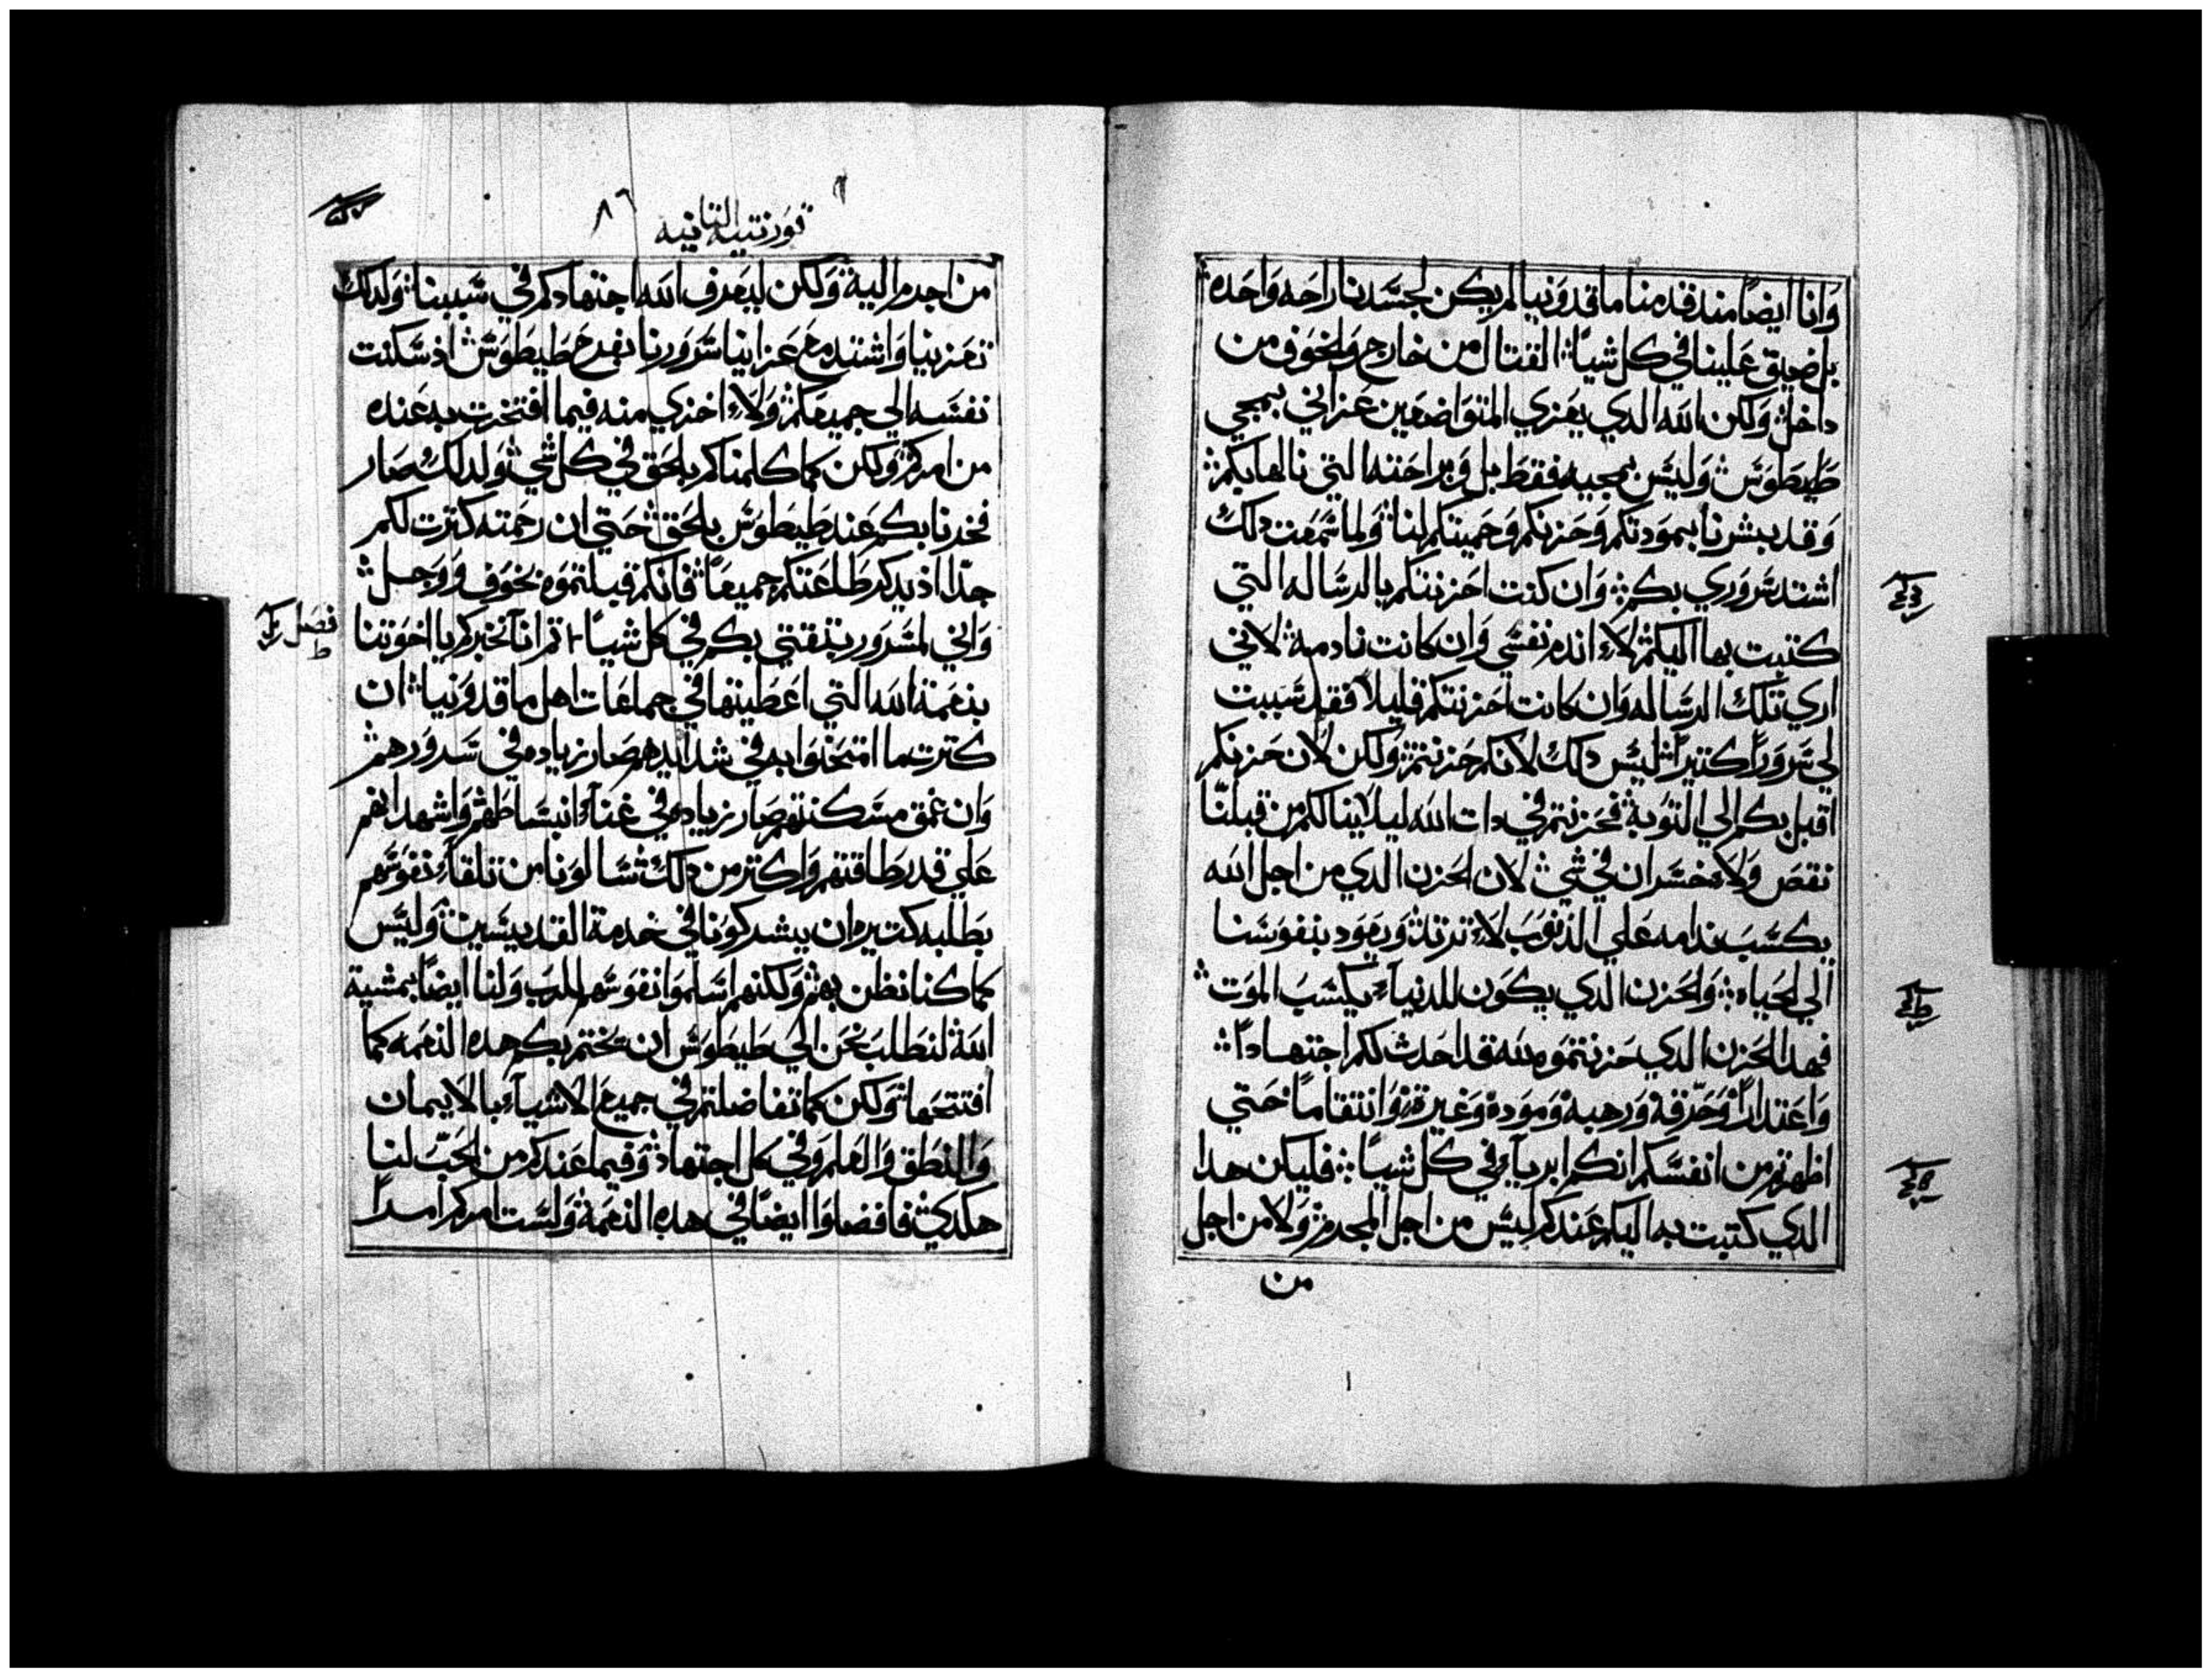 وَانا ايضاً مند قدمنا ماقدونيا لم يكن لجسَدنا راحه وَاحَده
بل ضيق عَلينا في كل شياً القتال من خارج وَالخوَف من
داخل وَلكن الله الدي يعَزي المتوَاضعَين عَزاني بمجي
طَيطَوَسَ وَليسَ بمجيه فقطَ بل وَبراحَته التي نالها بكم
وَقد يبشرنا بموَدتكم وَحَزنكم وَحَميتكم لنا وَلما سَمعَت دلك
اشتد سَروَري بكم وَان كنت احَزنتكم بالرسَاله التي
كتبت بها اليكم لاَ اندم نفسَي وَان كانت نادمة لاني
اري تلك الرسَاله وَان كانت احَزنتكم قليلاً فقد سَببت
لي سَروَراً كتيراً ليسَ دلك لانكم حَزنتم وَلكن لان حَزنكم
اقبل بكم الي التوَبة فحَزنتم في دات الله ليلا ينالكم من قبلنا
نقصَ وَلا خسَران في شي لان الحَزن الدي من اجل الله
يكسَب ندامه عَلي الذنوَبَ لاَ ترتد وَيعَود بنفوَسَنا
الي الحَياه وَالحَزن الدي يكوَن للدنياَ يكسَبَ الموَت
فهدا الحَزن الدي حَزنتموَه لله قد احَدث لكم اجتهاداً
وَاعَتداراً وَحَرقة وَرهبة وَموَدة وَغيرة وَانتقاماً حَتي
اظهرتم من انفسَكم انكم ابرياَ في كل شياً فليكن هدا
الدي كتبت به اليكم عَندكم ليسَ من اجل المجرم وَلا من اجل
من
قورنتيه التانيه
٨٦
من اجرم اليه وَلكن ليعَرف الله اجتهادكم في سَببنا وَلدلك
تعَزينا وَاشتد مع عَزاينا سَروَرنا بفرح طَيطَوَسَ اذ سَكنت
نفسَه الي جميعَكم وَلاَ اخزي منه فيما افتخرت به عَنده
من امركم وَلكن كما كلمناكم بالحَق في كل شي وَلدلك صَار
فخرنا بكم عَند طَيطَوسَ بالحَق حَتي ان رحَمته كترت لكم
جدا اذ يدكر طَاعَتكم جميعَاً فانكم قبلتموَه بخوَف وَوَجل
وَاني لمسَروَر بتقتي بكم في كل شياً تم انا نخبركم يا اخوَتنا
فصَل
بنعَمة الله التي اعَطَيتها في جماعَات اهل ماقدوَنيا ان
كترت ما امتحَنوَا به في شدايدهم صَار زياده في سَروَرهم
وَان عَمق مسَكنتهم صَار زياده في غناَ انبسَاطَهم وَاشهد انهم
عَلي قدر طَاقتهم وَاكتر من دلك سَالوَنا من تلقاَ نفوَسَهم
بطَلبه كتيره ان يشركوَنا في خدمة القديسَين وَليسَ
كما كنا نظن بهم وَلكنهم اسَلموَا نفوَسَهم للربَ وَلنا ايضاً بمشية
الله لنطَلبَ نحَن الي طَيطَوَسَ ان يختم بكم هده النعَمه كما
افتتحَها وَلكن كما تفاضلتم في جميعَ الاشياَ بالايمان
وَالنطَق وَالعَلم وَفي كل اجتهاد وَفيما عَندكم من الحَبَ لنا
هكدي فافضلوَا ايضاً في هده النعَمة وَلسَت امركم امراً